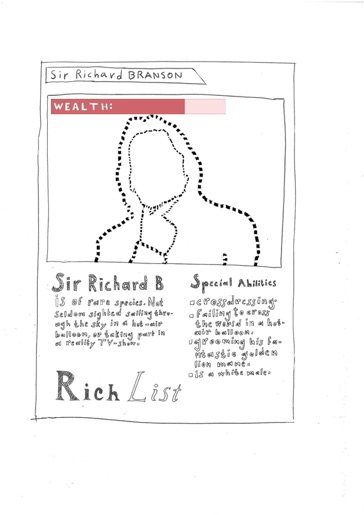 Sir Richard BRANSON
WEALTH:
Sir Richard B
is of rare species. Not
seldom sighted sailing thro-
ugh the sky in a hot-air
balloon, or taking part in
a reality TV-show.
Special Abilities
crossdressing.
Failing to cross
the world in a hot-
air balloon.
grooming his fa-
ntastic golden
lion mane.
Is a white male.
Rich List